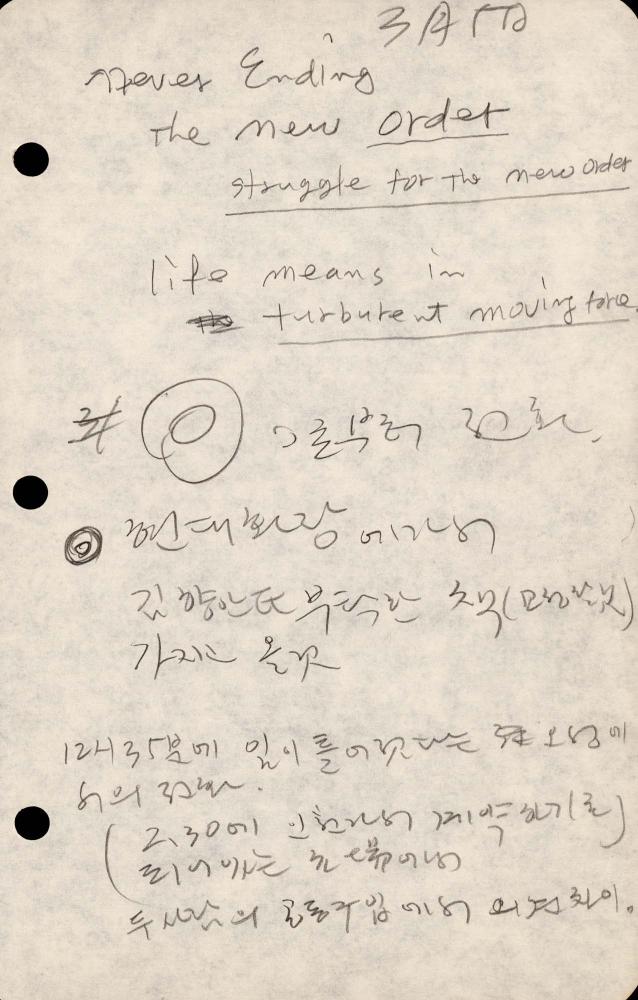 3AM
Never Ending
the new order
struggle for the new order
life means in
turburent moving force
로부터 전화.
현대화랑에가서
김향안氏 부탁한 책
가지고 올것
12시35분에 일이 틀어졌다는
서의 전화.
(2.30에 가서 계약하기로)
두사람의 공동주임에서 의견차이.